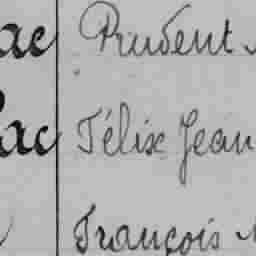 ac Prudent
ac Félix Jean
François